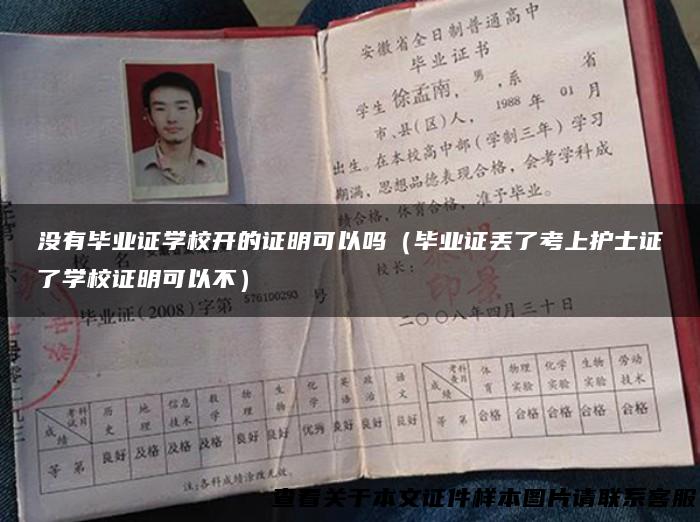 安徽省全日制普通高中
毕业证书
学生 徐孟南，男，系 省
市、县(区)人，1988 年 01 月
出生。在本校高中部（学制三年）学习
期满，思想品德表现合格，会考学科成
绩合格，体育合格，准予毕业。
没有毕业证学校开的证明可以吗（毕业证丢了考上护士证
了学校证明可以不）
校 名
校长：
毕业证(2008)字第 576100293 号
二〇〇八年四月三十日
考试科目 历史 地理 信息技术 数学 物理 生物 化学 英语 政治 语文
成绩
等 第 良好 及格 及格 及格 良好 良好 优秀 良好 良好 良好
注:各科成绩涂改无效。
考查科目 体育 物理实验 化学实验 生物实验 劳动技术
成绩
等 第 合格 合格 合格 合格 合格
查看关于本文证件样本图片请联系客服